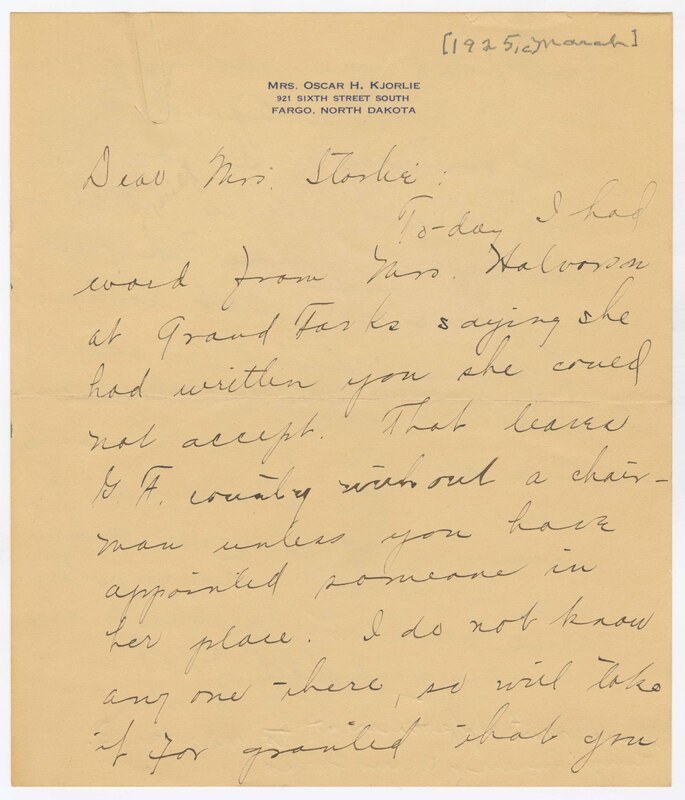 [1925, March]
MRS. OSCAR H. KJORLIE
921 SIXTH STREET SOUTH
FARGO, NORTH DAKOTA
Dear Mrs. Storlie:
To-day I had
word from Mrs. Halvorson
at Grand Forks saying she
had written you she could
not accept. That leaves
G. F. county without a chair-
man unless you have
appointed someone in
her place. I do not know
any one there, so will take
it for granted that you